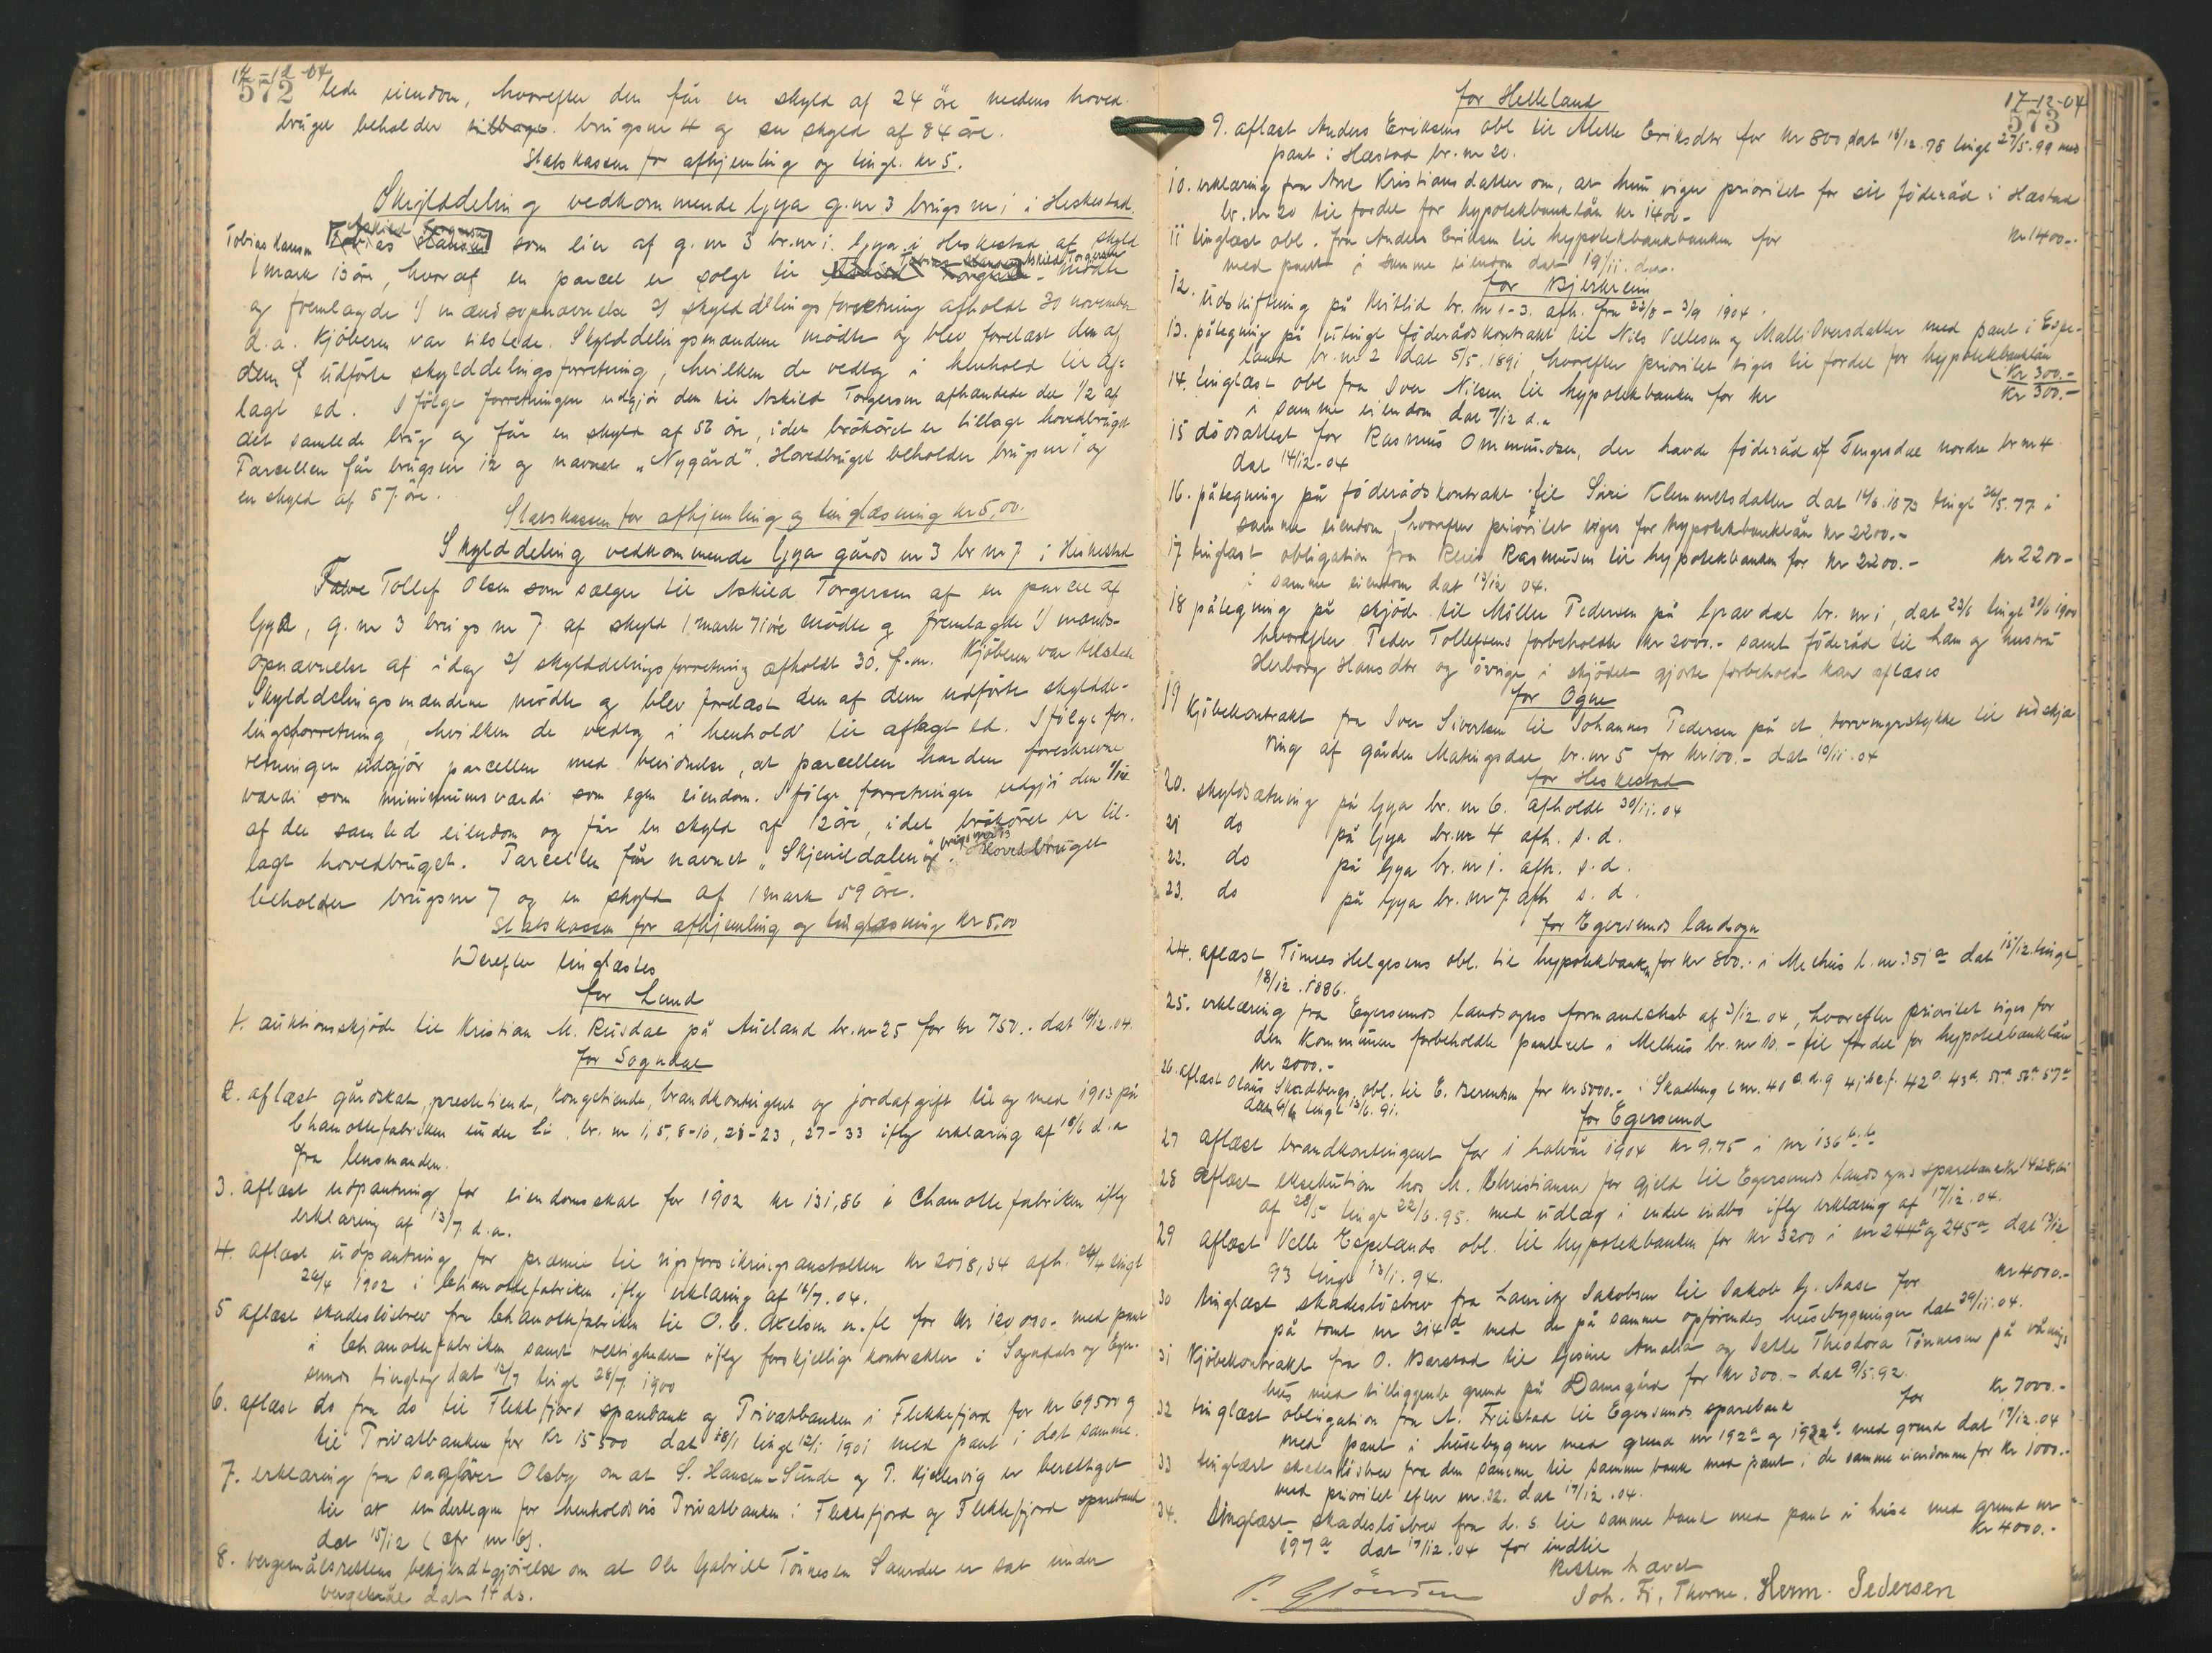 17-12-04
572
lede eiendom, hvorefter den får en skyld af 24 öre medens hoved-
bruget beholder tilbage brugsnr 4 og en skyld af 84 öre.
Statskassen for afhjemling og tingl. kr 5.
Skylddeling vedkommende Gya g.nr 3 brugsnr 1 i Heskestad.
Askild Torgersen
Tobias Hansen Tobias Hansen som eier af g. nr 3 br.nr 1. Gya i Heskestad af skyld
Tobias Hansen Askild Torgersen
1 mark 13 öre, hvoraf en parcel er solgt til Askild Torgersen mödte
og fremlagde 1) mændsopnævnelse 2) skylddelingsforretning afholdt 30 november
d.a. Kjöberen var tilstede. Skylddelingsmændene mödte og blev forelæst den af
dem udförte skylddelingsforretning, hvilken de vedtog i henhold til af-
lagt ed. Ifölge forretningen udgjör den til Askild Torgersen afhændede del 1/2 af
det samlede brug og får en skyld af 56 öre, idet brököret er tillagt hovedbruget
Parcellen får brugsnr 12 og navnet "Nygård". Hovedbruget beholder brugsnr 1 og
en skyld af 57 öre.
Statskassen for afhjemling og tinglæsning kr 5,00.
Skylddeling vedkommende Gya gårds nr 3 br nr 7 i Heskestad
Tollef Olsen som sælger til Askild Torgersen af en parcel af
Gya, g. nr 3 brugsnr 7 af skyld 1 mark 71 öre mödte og fremlagde 1) mænds-
opnævnelse af idag 2) skylddelingsforretning afholdt 30. f.m. Kjöberen var tilstede
Skylddelingsmændene mödte og blev forelæst den af dem udförte skyldde-
lingsforretning, hvilken de vedtog i henhold til aflagt ed. Ifölge for-
retningen udgjör parcellen med bevidnelse, at parcellen har den foreskrevne
værdi som minimumsværdi som egen eiendom. Ifölge forretningen udgjör den
af den samled eiendom og får en skyld af 12 öre, idet brököret er til-
brugsnr 13
lagt hovedbruget. Parcellen får navnet "Skjerildalen" og Hovedbruget
beholder brugsnr 7 og en skyld af 1 mark 59 öre.
Statskassen for afhjemling og tinglæsning kr 5,00
Derefter tinglæstes
for Lund
1. auktionsskjöde til Kristian M. Rusdal på Aueland br.nr 25 for kr 750.- dat 16/12.04.
for Sogndal
2. aflæst gårdskat, prestetiende, kongetiende, brandkontingent og jordafgift til og med 1903 på
Chamottefabriken under Li, br. nr 1, 5, 8-10, 20-23, 27-33 iflg erklæring af 18/6 d.a
fra lensmanden.
3. aflæst udpantning for eiendomsskat for 1902 kr 131,86 i Chamottefabriken iflg
erklæring af 13/7 d.a.
4. aflæst udpantning for præmie til rigsforsikringsanstalten kr 2018,34 afh. 24/4 tingl
26/4 1902 i Chamottefabriken iflg erklæring af 16/7.04.
5 aflæst skadeslösbrev fra Chamottefabriken til O. C. Axelsen m.fl for kr 120000- med pant
i Chamottefabriken samt rettigheder iflg forskjellige kontrakter i Sogndals og Eger-
sunds tinglag dat 12/7 tingl 28/7 1900
6. aflæst do fra do til Flekkefjord sparebank og Privatbanken i Flekkefjord for kr 69500 og
til Privatbanken for kr 15500 dat 18/1 tingl 12/1 1901 med pant i det samme.
7. erklæring fra sagförer Olsby om at S. Hansen-Sunde og P. Kjellesvig er berettiget
til at undertegne for henholdsvis Privatbanken i Flekkefjord og Flekkefjord sparebank
dat 15/12 (cfr nr 6).
8. vergemålsrettens bekjendtgjörelse om at Ole Gabriel Tönnesen Saurdal er sat under
vergemål dat 14 ds.
17-12-04
573
for Helleland
9. aflæst Anders Eriksens obl til Mette Eriksdtr for kr 800 dat 16/12.98 tingl 27/5.99 med
pant i Hæstad br. nr 20.
10. erklæring fra Ane Kristiansdatter om, at hun viger prioritet for sit föderåd i Hæstad
br.nr 20 til fordel for hypotekbanklån kr 1400-
11 tinglæst obl. fra Anders Eriksen til hypotekbanken for kr 1400.-
med pant i samme eiendom dat 19/11. d.a.
for Bjerkreim
12. Udskiftning på Netlid br. nr 1-3. afh. fra 22/8 - 3/9 1904.
13. påtegning på utingl föderådskontrakt til Nils Vellesen og Malli Oversdatter med pant i Espe-
land br. nr 2 dat 5/5.1891, hvorefter prioritet viges til fordel for hypotekbanklån
kr 300.-
14. tinglæst obl fra Iver Nilsen til hypotekbanken for kr kr 300.-
i samme eiendom dat 7/12 d.a
15 dödsattest for Rasmus Ommundsen, der havde föderåd af Tengesdal nordre br nr 4
dat 14/12-04
16. påtegning på föderådskontrakt til Siri Klemmetsdatter dat 14/6.1873 tingl 26/5.77 i
samme eiendom hvorefter prioritet viges for hypotekbanklån kr 2200.-
17 tinglæst obligation fra Reier Rasmusen til hypotekbanken for kr 2200.- kr 2200-
i samme eiendom dat 13/12 04.
18 påtegning på skjöde til Mölle Pedersen på Gravdal br. nr 1, dat 23/6 tingl 29/6 1900
hvorefter Peder Tollefsens forbeholdte kr 2000.- samt föderåd til ham og hustru
Herborg Hansdtr og övrige i skjödet gjorte forbehold kan aflæses
for Ogne
19 Kjöbekontrakt fra Iver Sivertsen til Johannes Pedersen på et torvmyrstykke til udskjæ
ring af gården Matingsdal br. nr 5 for kr 100.- dat 10/11.04
for Heskestad
20. skyldsætning på Gya br. nr 6. afholdt 30/11.04
21 do på Gya br.nr 4 afh. s. d.
22. do på Gya br. nr 1. afh. s. d.
23. do på Gya br. nr 7 afh s. d.
for Egersunds landsogn
24. aflæst Tönnes Helgesens obl. til hypotekbanken for kr 800.- i Melhus l. nr. 151a dat 11/12 tingl
18/12.1886.
25. erklæring fra Egersunds landsogns formandskab af 3/12.04, hvorefter prioritet viges for
den Kommunen forbeholdte panteret i Melhus br. nr 10.- til fordel for hypotekbanklån
kr 2000.-
26. aflæst Olaus Skadbergs obl. til E. Berentsen for kr 5000.- i Skadberg l nr. 40
tingl 13/6.91.
for Egersund
27 aflæst brandkontingent for 1 halvår 1904 kr 9,75 i nr 136
28 aflæst eksekution hos M. Christiansen for gjeld til Egersunds landsogns sparebank
af 28/5 tingl 22/6.95. med udlæg i endel indbo iflg erklæring af 17/12.04.
29 aflæst Velle Espelands obl. til hypotekbanken for kr 3200 i nr 244a og 245a dat 13/12
93 tingl 13/1.94.
30 tinglæst skadeslösbrev fra Lauritz Jakobsen til Jakob G. Aase for kr 4000.-
på tomt nr 214d med de på samme opförendes husebygninger dat 29/11.04.
31 Kjöbekontrakt fra O. Barstad til Gesine Amalia og Jette Theodora Tönnesen på vånings
hus med tilliggende grund på Damsgård for kr 300.- dat 9/5.92.
32 tinglæst obligation fra A. Freistad til Egersunds sparebank for kr 7000.-
med pant i husebygner med grund nr 192a og 192b med grund dat 17/12.04
33 tinglæst skadeslösbrev fra den samme til samme bank med pant i de samme eiendomme for kr 1000.-
med prioritet efter nr. 32. dat 17/12.04.
34. tinglæst skadeslösbrev fra d. s. til samme bank med pant i huse med grund nr
197a dat 17/12.04 for indtil kr 4000.-
Retten hævet
Joh. Fr. Thorne. Herm. Pedersen